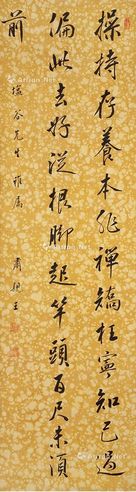 操持存養本非禪矯枉寧知已過
偏此去好從根腳起竿頭百尺未須
前
墩谷先生雅屬
肅親王